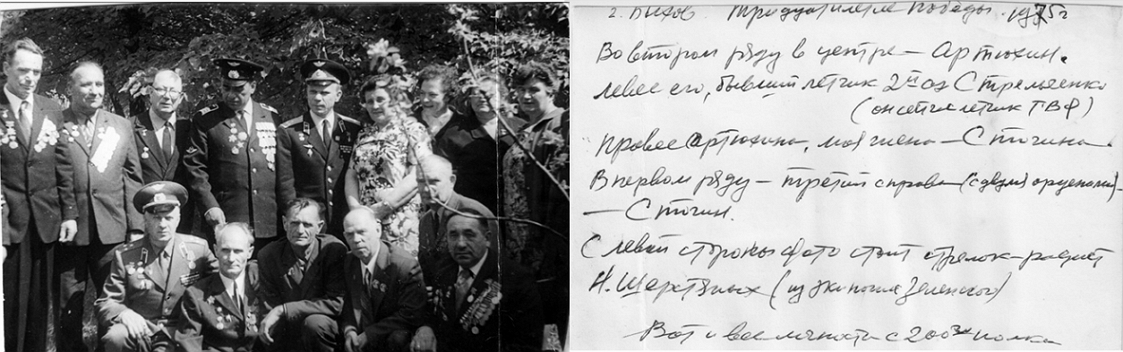 г. Быхов Тридцатилетие Победы. 1975 г
Во втором ряду в центре – Артюхин.
левее его, бывший летчик 2й аэ Стрельченко
(он сейчас летчик ГВФ)
Правее Артюхина, моя жена – Стогина.
В первом ряду – третий справа (с двумя орденами) –
– Стогин.
С левой стороны фото стоит стрелок-радист
Н. Шерстяных (из экипажа Зеленского)
Вот и все личности с 200го полка